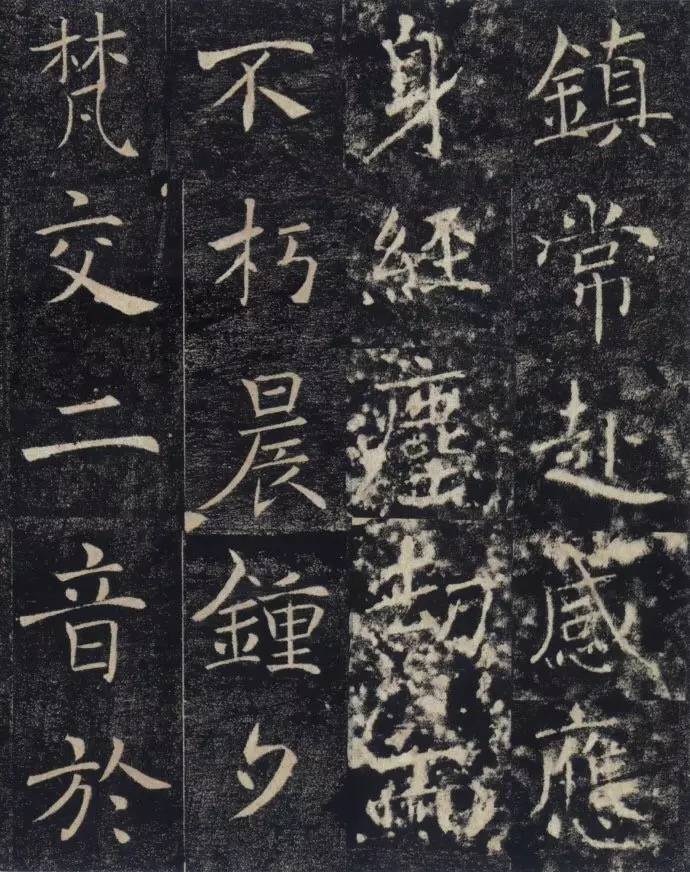 鎮常赴感應
身經塵劫而
不朽晨鍾夕
梵交二音於